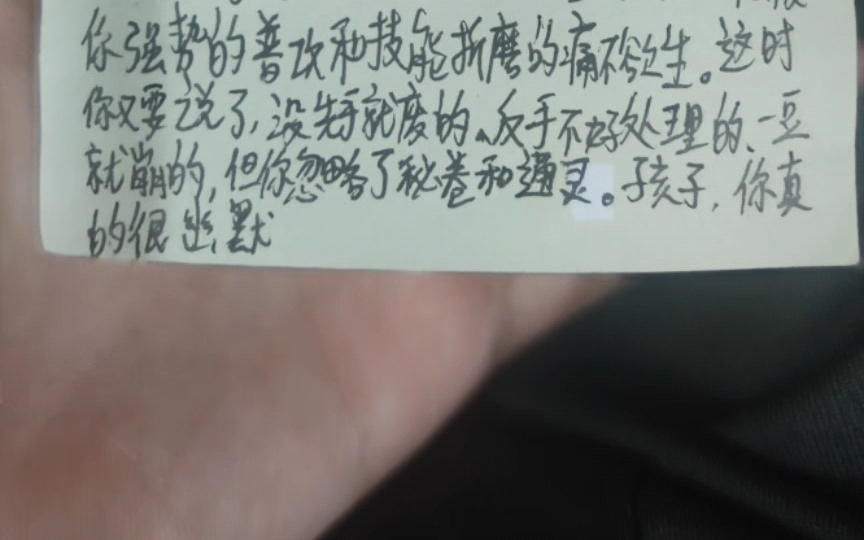 你强势的普攻和技能折磨的痛不欲生。这时
你又要说了，没先手就废的、反手不好处理的、一豆
就崩的，但你忽略了秘卷和通灵。孩子，你真
的很幽默